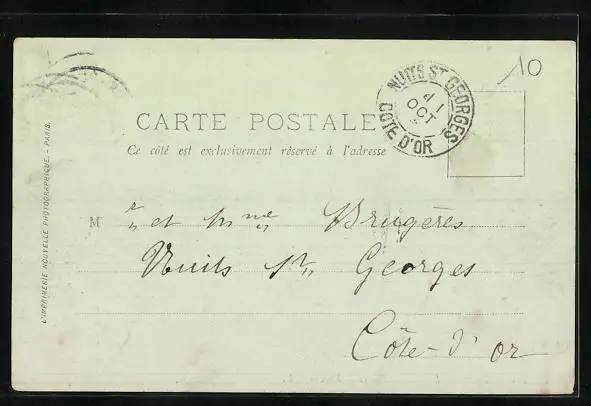 10
NUITS ST GEORGES
1
OCT
COTE D'OR
CARTE POSTALE
Ce côté est exclusivement réservé à l'adresse
M r et Mme Brugères
Nuits St Georges
Côte-d'Or
L'IMPRIMERIE NOUVELLE PHOTOGRAPHIQUE. - PARIS.